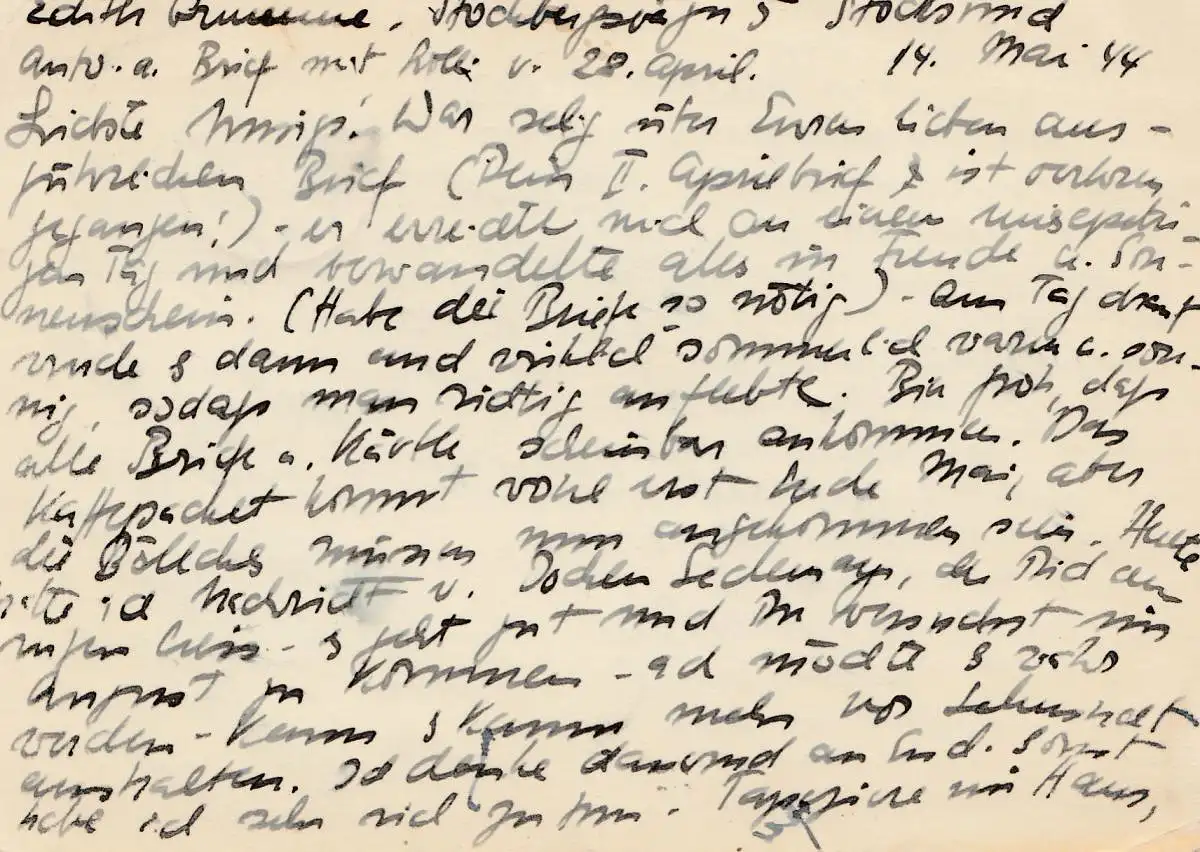 Edith , Stocksund
Antw. a. Brief mit v. 28. April. 14. Mai 44
Liebste War selig über Euren lieben aus-
führlichen Brief (Dein II. Aprilbrief ist verloren
gegangen!) - er erreichte mich an einem
gen Tag und verwandelte alles in Freude u. Son-
nenschein. (Habe die Briefe so nötig) - Am Tag drauf
wurde es dann auch wirklich sommerlich warm u. son-
nig, sodass man richtig auflebte. Bin froh, dass
alle Briefe u. Kärtle scheinbar ankommen. Das
Kaffepacket kommt wohl erst Ende Mai, aber
die müssen nun angekommen sein. Heute
hatte ich Nachricht v. Jochen der Dich an-
rufen liess - es geht gut und Du versuchst im
August zu kommen - ach möchte es wahr
werden - Kann es kaum mehr vor Sehnsucht
aushalten. Ich denke dauernd an Euch. Sonst
habe ich sehr viel zu tun. Tapeziere im Haus,